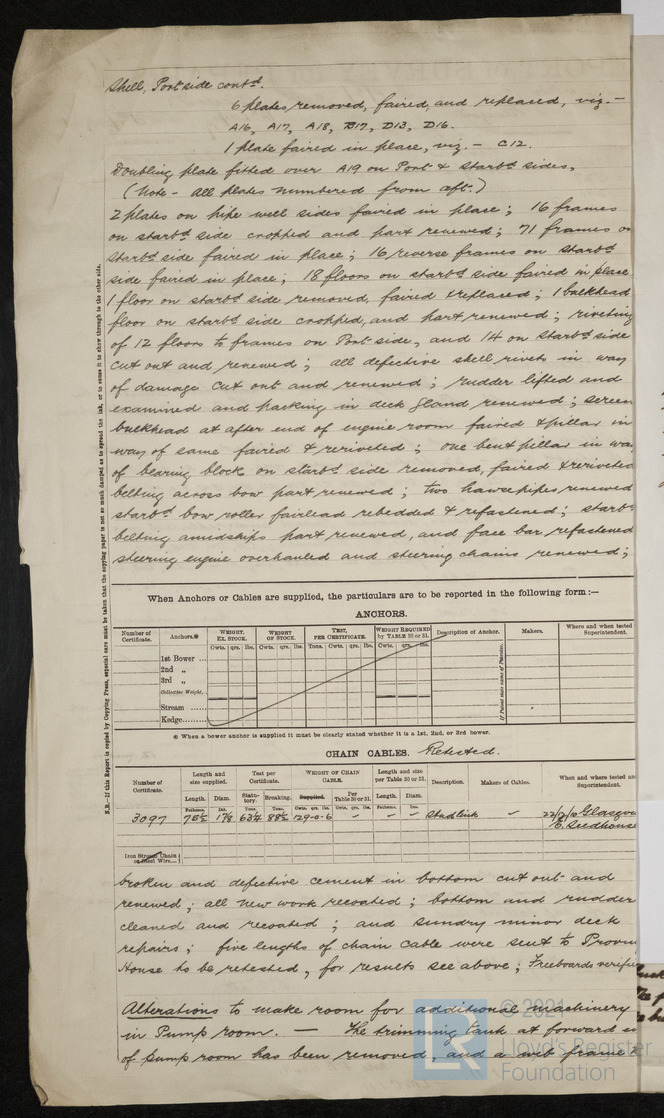 Shell, Port side contd.
6 plates removed, faired, and replaced, viz. -
A16, A17, A18, B17, D13, D16.
1 plate faired in place, viz. - C12.
Doubling plate fitted over A19 on Port & Starbd sides,
(Note - All plates numbered from aft.)
2 plates on pipe well sides faired in place; 16 frames
on starbd side cropped and part renewed; 71 frames on
starbd side faired in place; 16 reverse frames on starbd
side faired in place; 18 floors on starbd side faired in place
1 floor on starbd side removed, faired & replaced; 1 bulkhead
floor on starbd side cropped, and part renewed; riveting
of 12 floors to frames on Port side, and 14 on starbd side
cut out and renewed; all defective shell rivets in way
of damage cut out and renewed; rudder lifted and
examined and packing in deck gland renewed; screen
bulkhead at after end of engine room faired & pillar in
way of same faired & reriveted; one bent pillar in way
of bearing block on starbd side removed, faired & reriveted
belting across bow part renewed; two hawsepipes renewed
starbd bow roller fairlead rebedded & refastened; starbd
belting amidships part renewed, and face bar refastened
steering engine overhauled and steering chains renewed;
N.B.—If this Report is copied by Copying Press, especial care must be taken that the copying paper is not so much damped as to spread the ink, or to cause it to show through to the other side.
When Anchors or Cables are supplied, the particulars are to be reported in the following form :—
ANCHORS.
Number of Certificate. Anchors.* WEIGHT, EX. STOCK. WEIGHT OF STOCK. TEST, PER CERTIFICATE. WEIGHT REQUIRED by TABLE 30 or 31. Description of Anchor. Makers. Where and when tested Superintendent.
Cwts. qrs. lbs. Cwts. qrs. lbs. Tons. Cwts. qrs. lbs. Cwts. qrs. lbs.
1st Bower ...
2nd „
3rd „
Collective Weight.
Stream ......
Kedge.......
If Patent state name of Patentee.
* When a bower anchor is supplied it must be clearly stated whether it is a 1st, 2nd, or 3rd bower.
CHAIN CABLES. Retested.
Number of Certificate. Length and size supplied. Test per Certificate. WEIGHT OF CHAIN CABLE. Length and size per Table 30 or 31. Description. Makers of Cables. When and where tested Superintendent.
Length. Diam. Statutory. Breaking. Supplied. Per Table 30 or 31. Length. Diam.
Fathoms. Ins. Tons. Tons. Cwts. qrs. lbs. Cwts. qrs. lbs. Fathoms. Ins.
3097 75½ 1⅞ 63¼ 88½ 129-0-6 - - - Stud link - Glasgow
Iron Stream Chain or Steel Wire
broken and defective cement in bottom cut out and
renewed; all new work recoated; bottom and rudder
cleaned and recoated; and sundry minor deck
repairs; five lengths of chain cable were sent to
House to be retested, for results see above; Freeboards
Alterations to make room for additional machinery
in Pump room. — The trimming tank at forward
of pump room has been removed, and a web frame
© 2021
LR
Lloyd's Register
Foundation